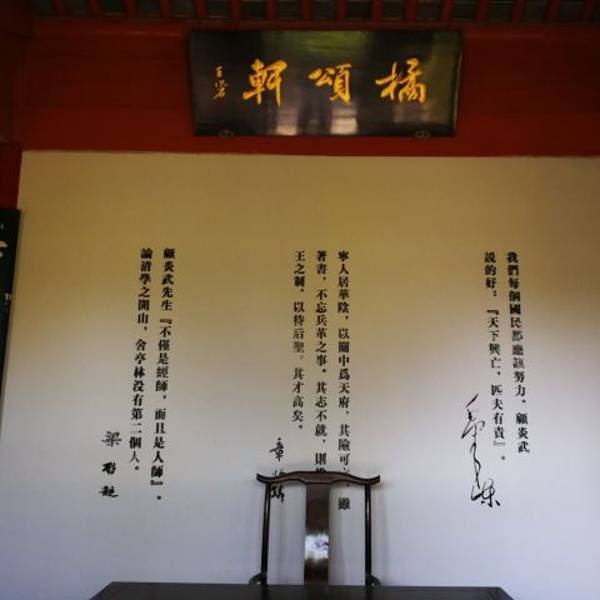 橘頌軒
王蘧
我們每個國民都應該努力。顧炎武
説的好：『天下興亡，匹夫有責』。
寧人居華陰，以關中爲天府，其險可 雖
著書，不忘兵革之事。其志不就，則
王之制，以待后聖，其才高矣。
章
顧炎武先生『不僅是經師，而且是人師』。
論清學之開山，舍亭林没有第二個人。
梁啟超